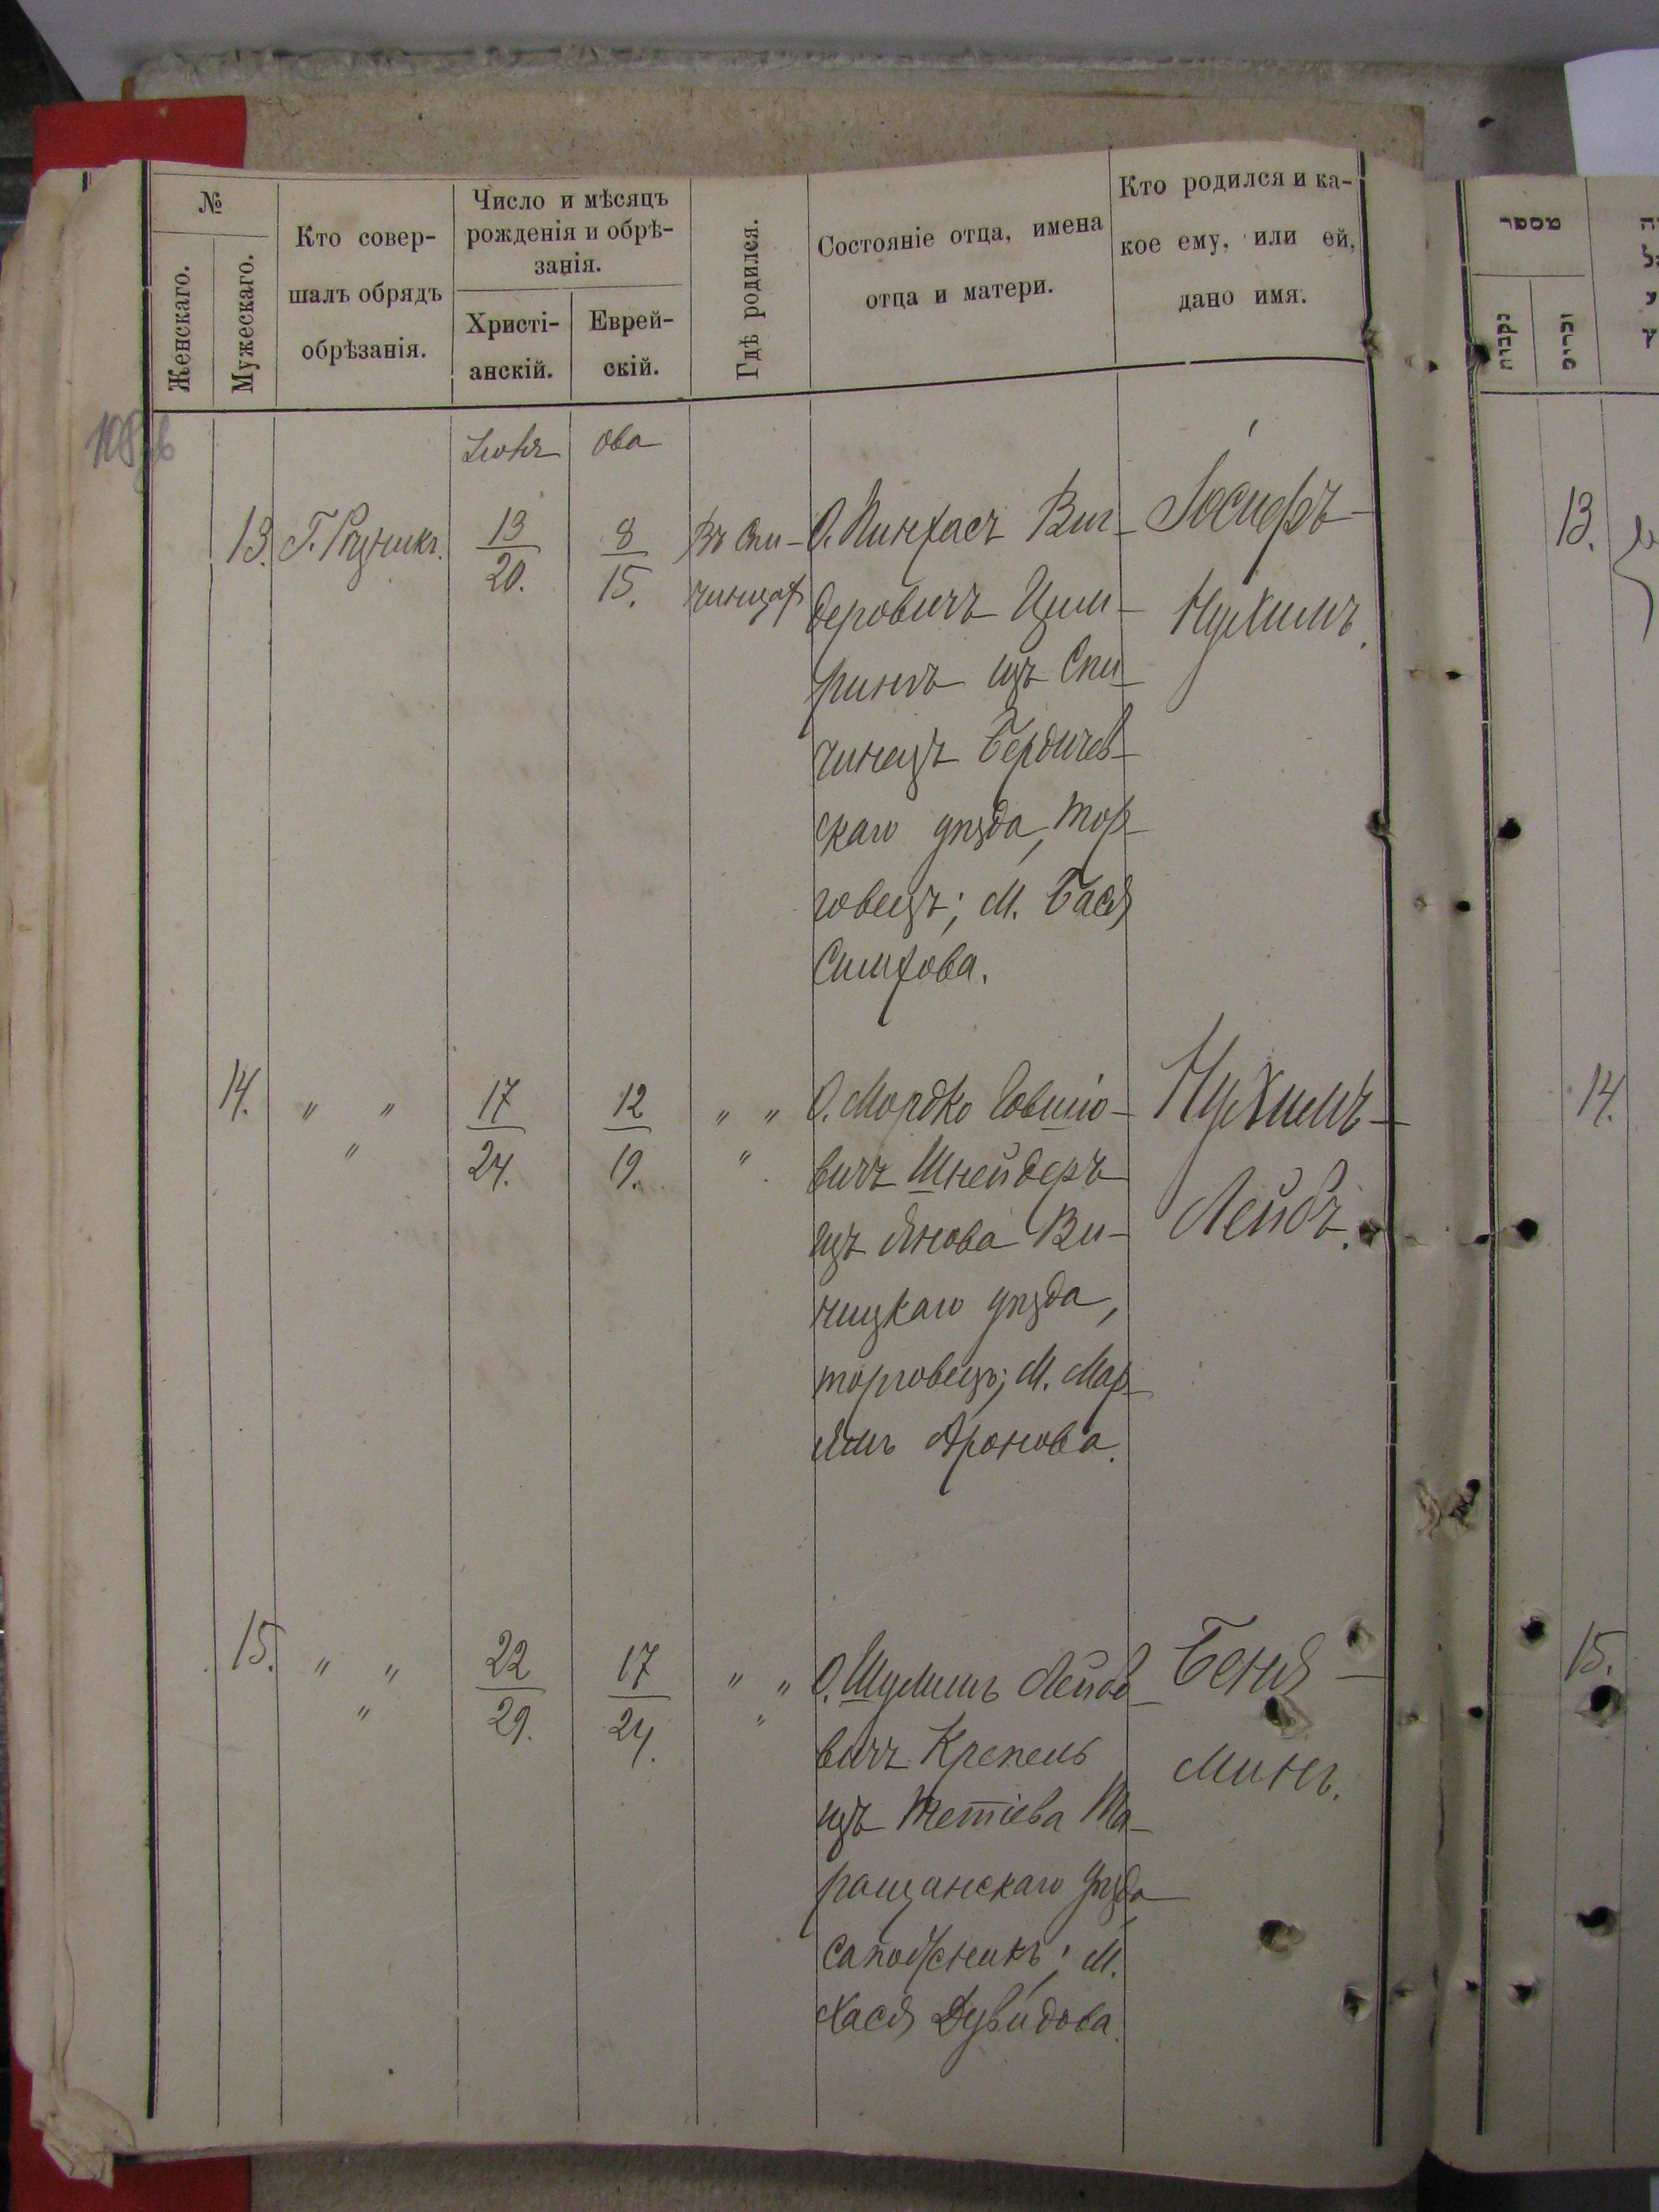 №
Женскаго.
Мужескаго.
Кто совер-
шалъ обрядъ
обрѣзанія.
Число и мѣсяцъ
рожденія и обрѣ-
занія.
Христі-
анскій.
Еврей-
скій.
Гдѣ родился.
Состояніе отца, имена
отца и матери.
Кто родился и ка-
кое ему, или ей,
дано имя.
מספר
נקבות
זכרים
Ова
13. Г. Рѣзникъ.
13
20.
8
15.
Въ Спи-
чинцах
О. Пинхасъ Виг-
деровичъ Цим-
ринъ изъ Спи-
чинецъ Бердичев-
скаго уѣзда, тор-
говецъ; М. Бася
Симхова.
Іосифъ-
Нухимъ.
13.
14. " "
"
17
24.
12
19.
" "
"
О. Мордко Іовшіо-
вичъ Шнейдеръ
изъ Янова Ви-
ницкаго уѣзда,
торговецъ; М. Мар-
ямъ Аронова.
Нухимъ-
Лейбъ.
14.
15. " "
"
22
29.
17
24.
" "
"
О. Шулимъ Лейбо-
вичъ Крепель
изъ Тетіева Та-
ращанскаго уѣзда
сапожникъ; М.
Хася Дувидова.
Беня-
минъ.
15.